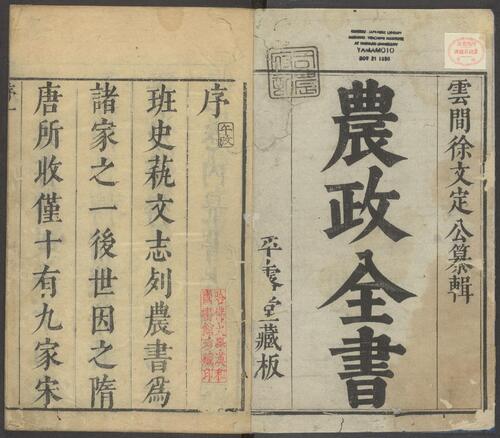 雲間徐文定公纂輯
農政全書
平露堂藏板
YAMAMOTO
序
農政
班史蓺文志列農書為
諸家之一後世因之隋
唐所收僅十有九家宋